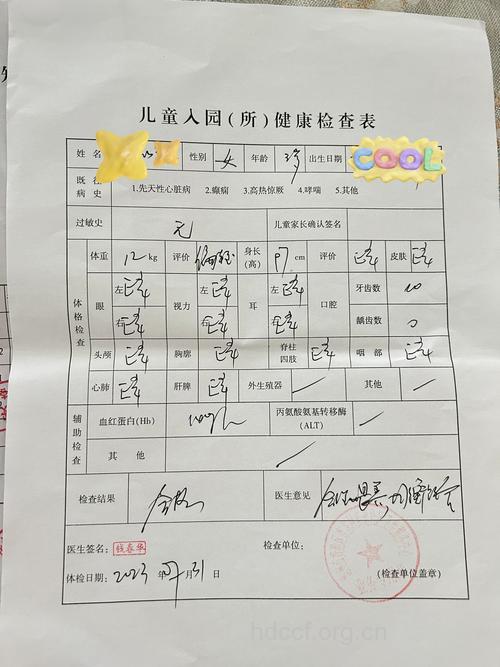 儿童入园(所)健康检查表
姓名 性别 女 年龄 3岁 出生日期 COOL
既往病史 1.先天性心脏病 2.癫痫 3.高热惊厥 4.哮喘 5.其他
过敏史 无 儿童家长确认签名
体格检查 体重 12 kg 评价 偏轻 身长(高) 97 cm 评价 正常 皮肤 正常
眼 左 正常 视力 左 正常 耳 左 正常 口腔 牙齿数
右 正常 右 正常 右 正常 龋齿数 0
头颅 正常 胸廓 正常 脊柱四肢 正常 咽部 正常
心肺 正常 肝脾 正常 外生殖器 / 其他 /
辅助检查 血红蛋白(Hb) 丙氨酸氨基转移酶(ALT) /
其他 /
检查结果 合格 医生意见
医生签名: 钱春华 检查单位:
体检日期: 2023 年 07 月 31 日 (检查单位盖章)
hdccf.org.cn